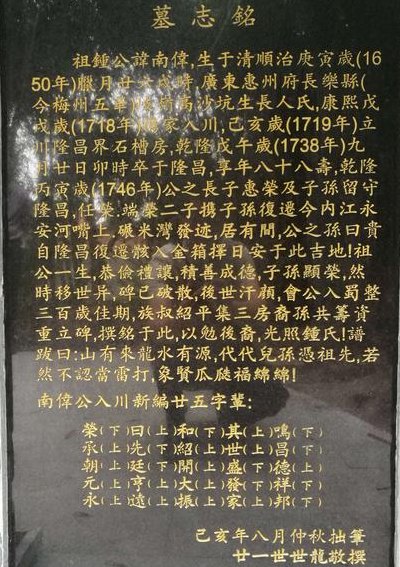 墓志銘
祖鍾公諱南偉,生于清順治庚寅歲(16
50年)臘月廿六戌時,廣東惠州府長樂縣(
今梅州五華)高沙坑生長人氏,康熙戊
戌歲(1718年)家入川,己亥歲(1719年)立
川隆昌界石槽房,乾隆戊午歲(1738年)九
月廿日卯時卒于隆昌,享年八十八壽,乾隆
丙寅歲(1746年)公之長子惠榮及子孫留守
隆昌,任榮,端榮二子携子孫復遷今内江永
安河嘴上,碾米灣發迹,居有間,公之孫曰貴
自隆昌復遷骸入金箱擇日安于此吉地!祖
公一生,恭儉禮讓,積善成德,子孫顯榮,然
時移世异,碑已破散,後世汗顔,會公入蜀整
三百歲佳期,族叔紹平集三房裔孫共籌資
重立碑,撰銘于此,以勉後裔,光照鍾氏!譜
跋曰:山有來龍水有源,代代兒孫憑祖先,若
然不認當雷打,象賢瓜瓞福綿綿!
南偉公入川新編廿五字輩:
榮(下)曰(上)和(下)其(上)鳴(下)
承(上)先(下)紹(上)世(上)昌(下)
朝(上)廷(下)開(上)盛(下)德(上)
元(上)亨(上)大(上)發(下)祥(下)
永(上)遠(上)振(上)家(上)邦(下)
己亥年八月仲秋拙筆
廿一世世龍敬撰